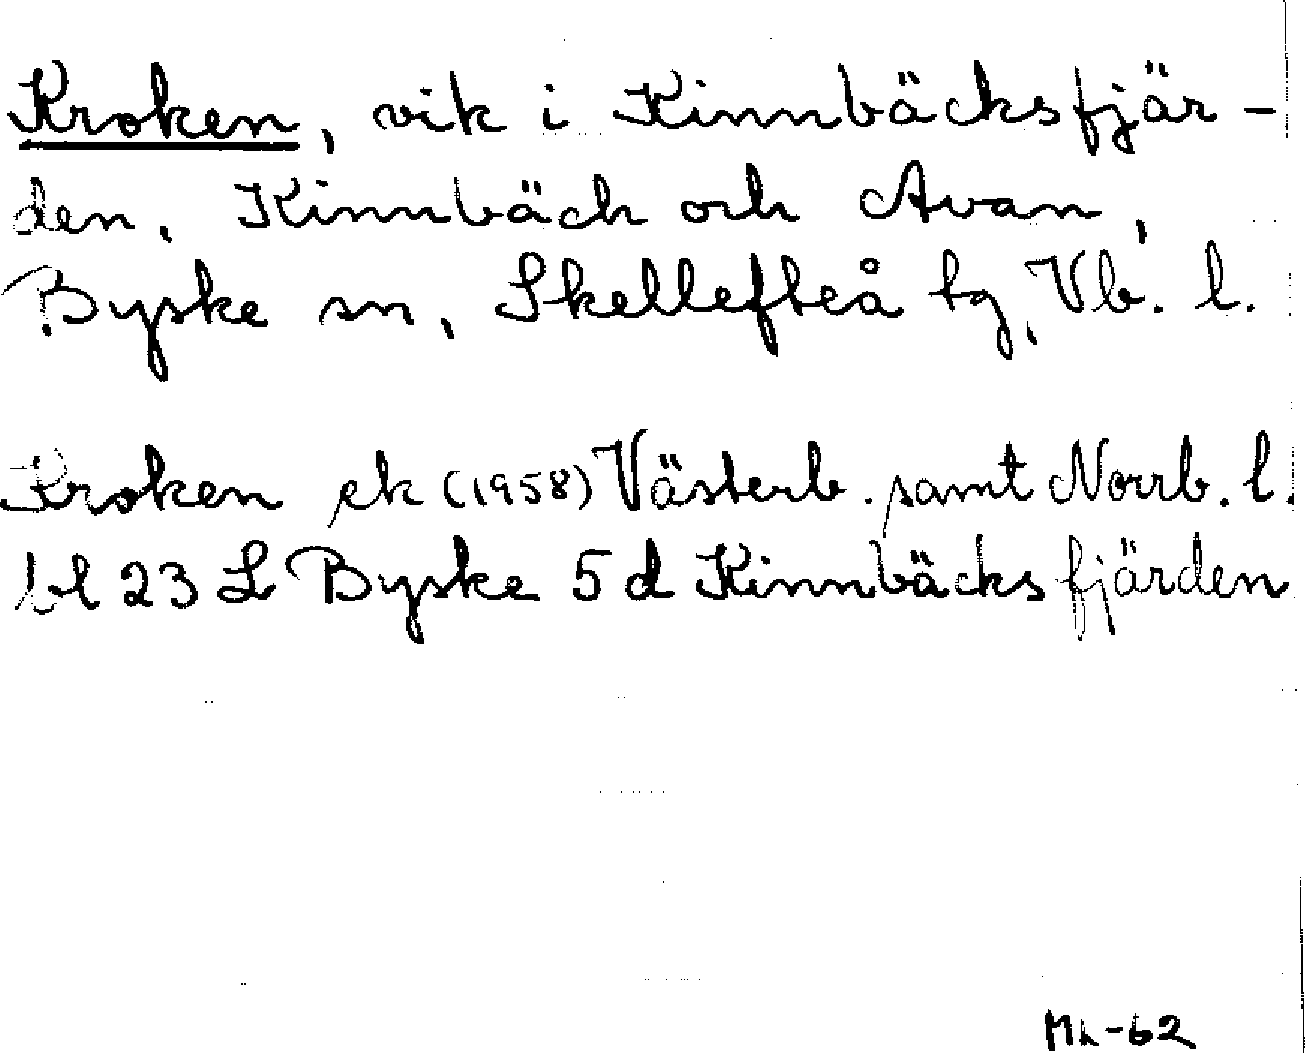 Kroken, vik i Kinnbäcksfjär-
den, Kinnbäck och Avan,
Byske sn, Skellefteå tg, Vb. l.
Kroken ek (1958) Västerb. samt Norrb. l.
bl 23 L Byske 5 d Kinnbäcksfjärden
Mh-62